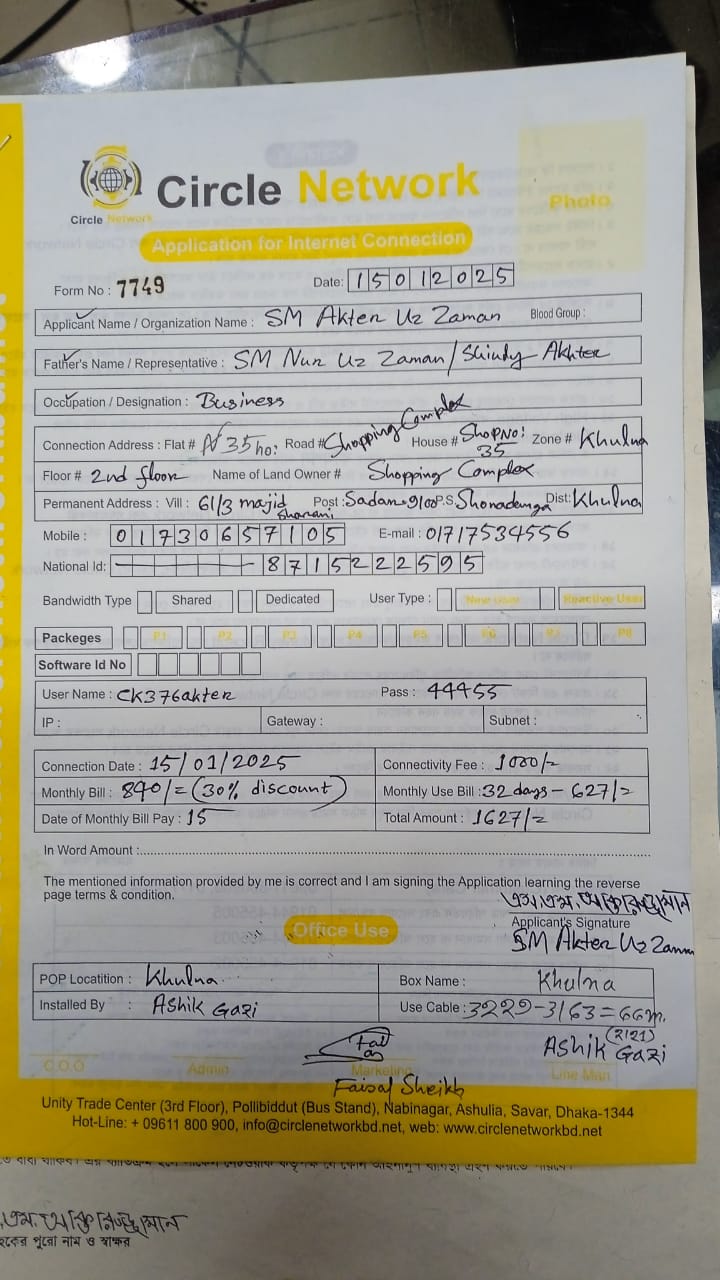 Circle Network
Circle Network
Photo
Application for Internet Connection
Form No : 7749
Date: 15012025
Applicant Name / Organization Name : SM Akter Uz Zaman Blood Group :
Father's Name / Representative : SM Nur Uz Zaman / Shindy Akhter
Occupation / Designation : Business
Connection Address : Flat # 35 no: Road # Shopping Complex House # Shop No: 35 Zone # Khulna
Floor # 2nd floor Name of Land Owner # Shopping Complex
Permanent Address : Vill : 61/3 majid Sharani Post : Sadar-9100 P.S. Shonadanga Dist: Khulna
Mobile : 01730657105 E-mail : 01717534556
National Id: 8715222595
Bandwidth Type Shared Dedicated User Type : New User Reactive User
Packeges P1 P2 P3 P4 P5 P6 P7 P8
Software Id No
User Name : CK376akter Pass : 44455
IP : Gateway : Subnet :
Connection Date : 15/01/2025 Connectivity Fee : 1000/-
Monthly Bill : 890/= (30% discount) Monthly Use Bill : 32 days - 627/=
Date of Monthly Bill Pay : 15 Total Amount : 1627/=
In Word Amount :
The mentioned information provided by me is correct and I am signing the Application learning the reverse
page terms & condition.
Applicant's Signature
SM Akter Uz Zaman
Office Use
POP Locatition : Khulna Box Name : Khulna
Installed By : Ashik Gazi Use Cable : 3229-3163=66m.
(2121)
Ashik Gazi
C.O.O Admin Marketing Line Man
Faisal Sheikh
Unity Trade Center (3rd Floor), Pollibiddut (Bus Stand), Nabinagar, Ashulia, Savar, Dhaka-1344
Hot-Line: + 09611 800 900, info@circlenetworkbd.net, web: www.circlenetworkbd.net
হকের পুরো নাম ও স্বাক্ষর